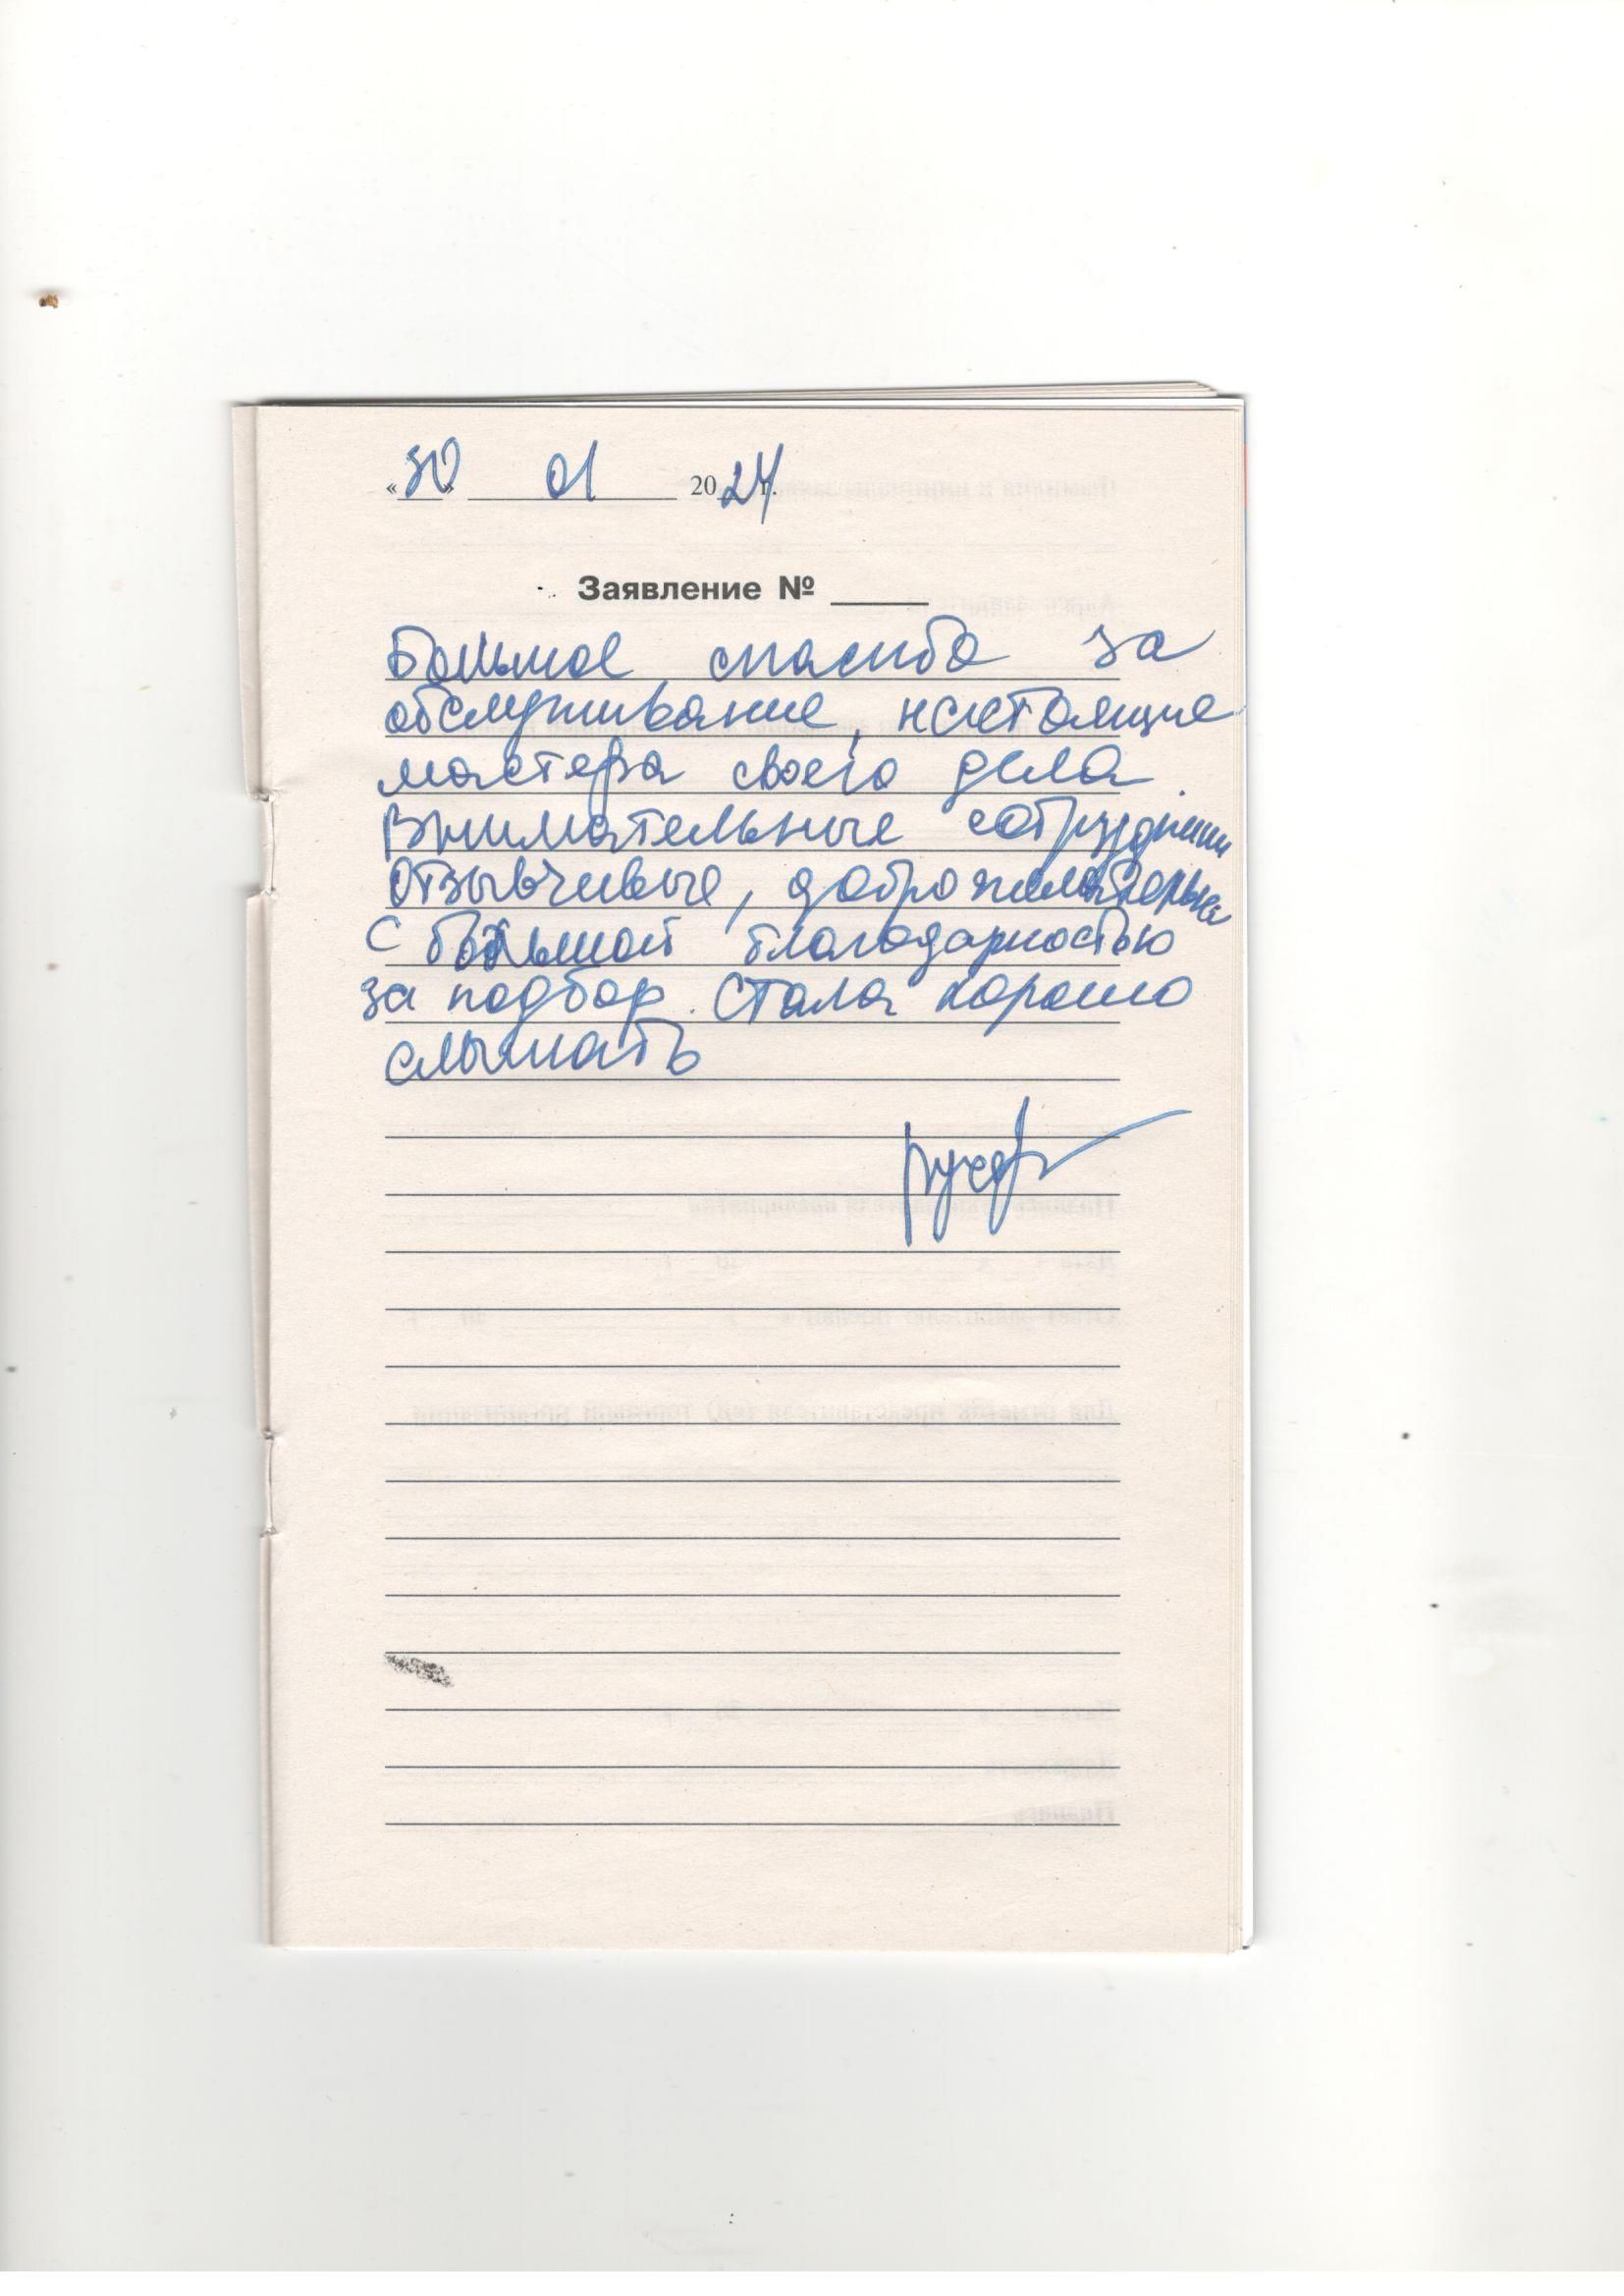 «30» 01 2024 г.
Заявление №
Большое спасибо за
обслуживание, настоящие
мастера своего дела.
Внимательные сотрудники
отзывчивые, доброжелательные
С большой благодарностью
за подбор. Стала хорошо
слышать